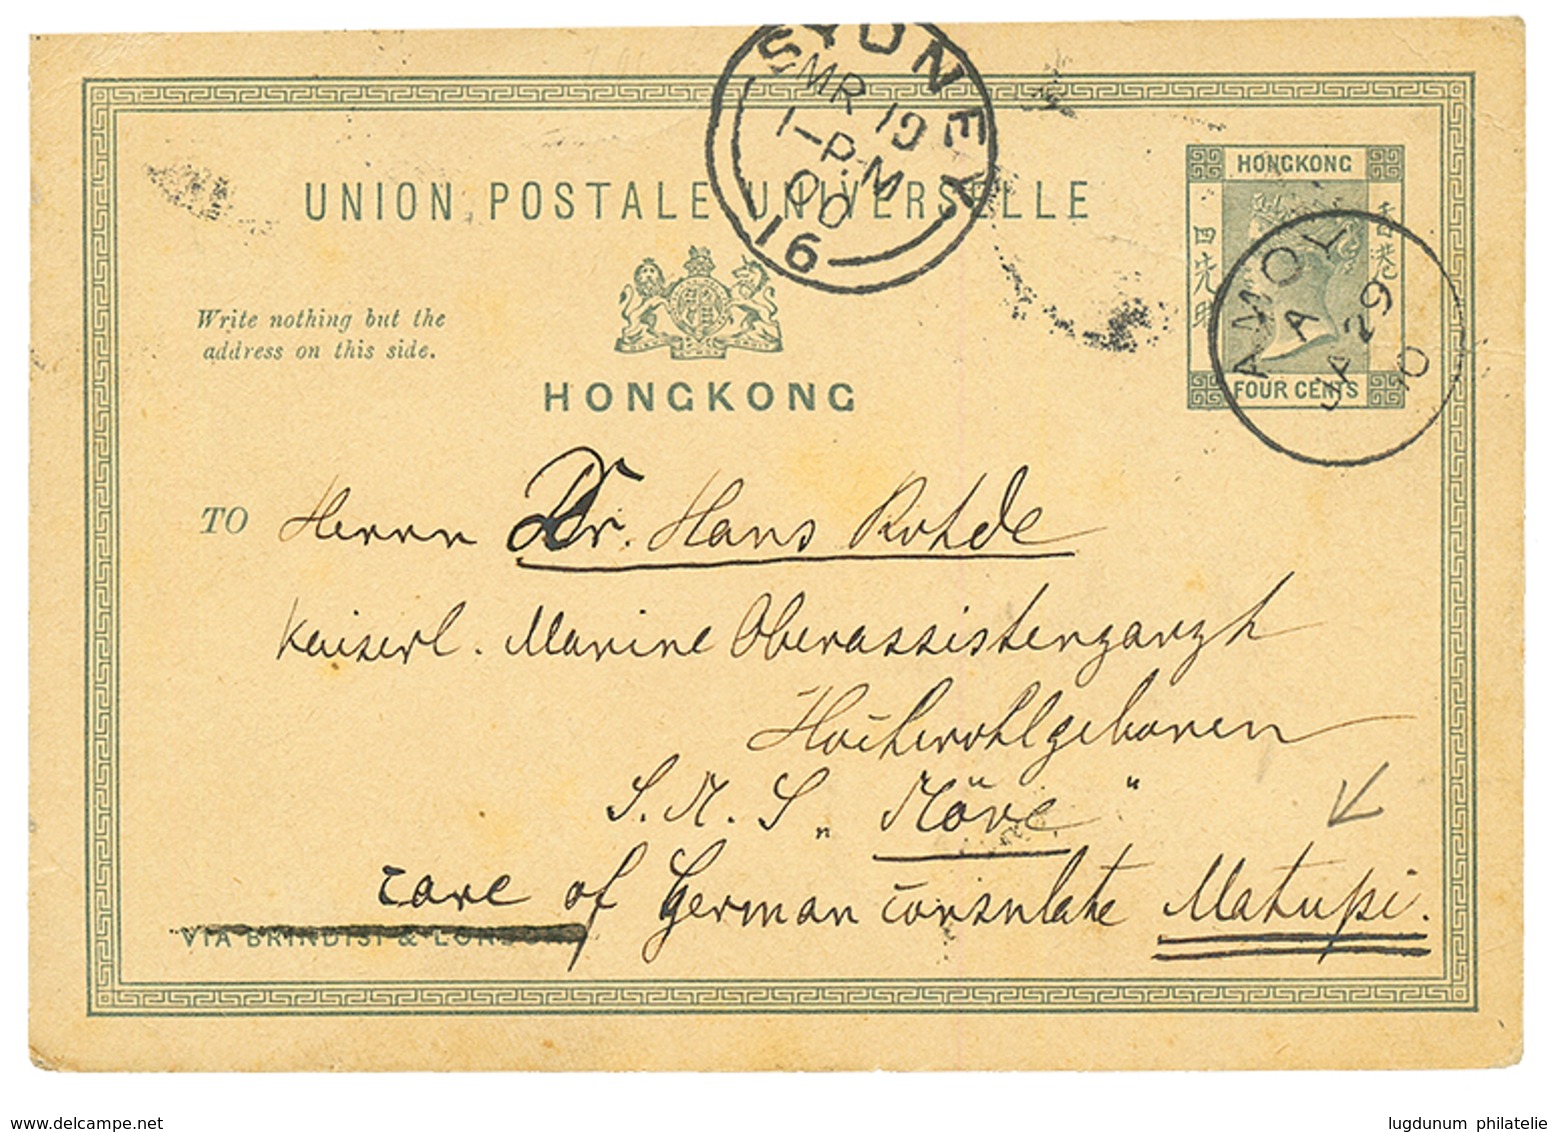 SYDNEY
MR 19
1-P.M
00
16
UNION POSTALE UNIVERSELLE
HONGKONG
香港
四先時
FOUR CENTS
AMOY
A
JA 29
00
Write nothing but the
address on this side.
HONGKONG
TO Herrn Dr. Hans Rohde
Kaiserl. Marine Oberassistenzarzt
Hochwohlgeboren
S.M.S. „Möve"
care of German Consulate Matupi.
VIA BRINDISI & LONDON
www.delcampe.net
lugdunum philatelie